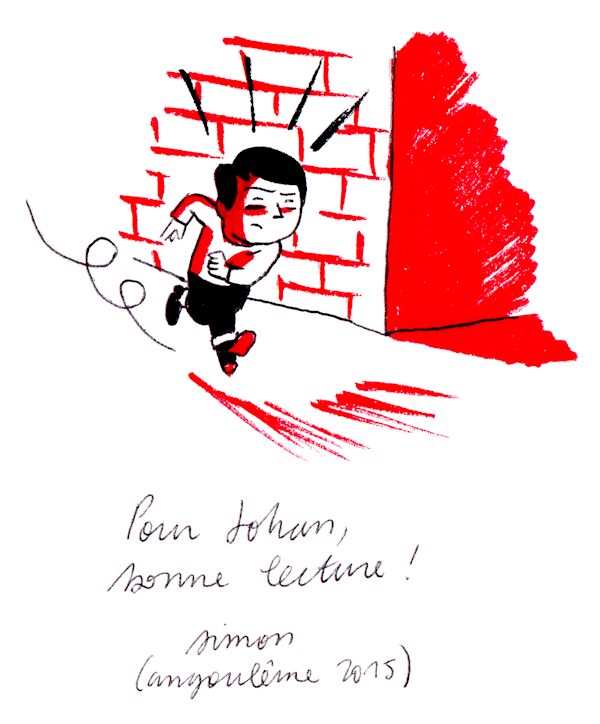 Pour Johan,
bonne lecture !
simon
(angoulême 2015)